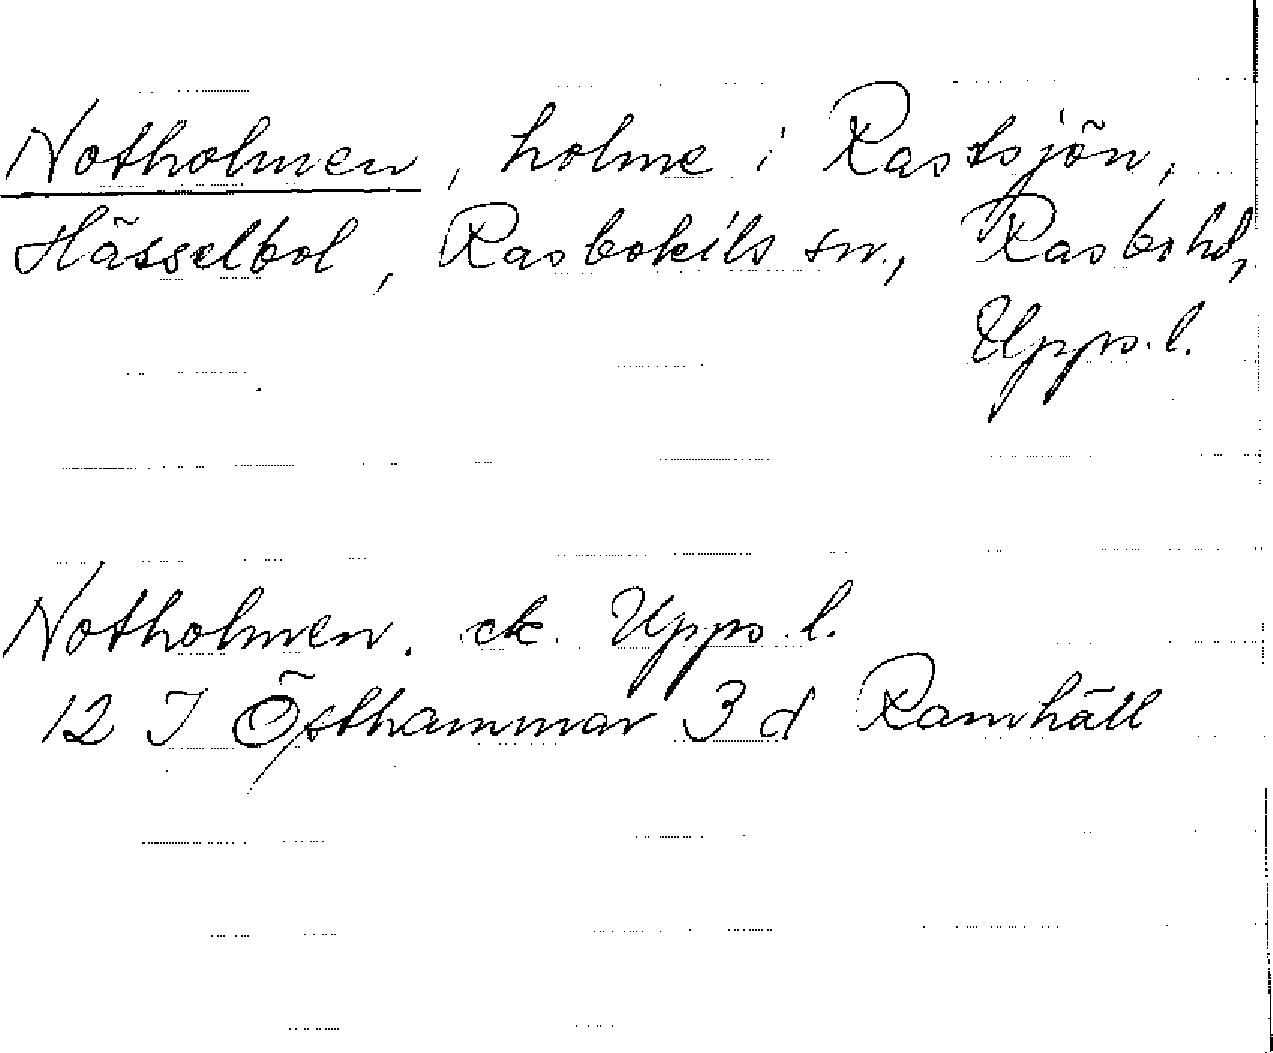 Notholmen, holme i Rastsjön,
Hässelbol, Rasbokils sn., Rasbo hd,
Upps. l.
Notholmen. ek. Upps. l.
12 I Östhammar 3 d Ramhäll